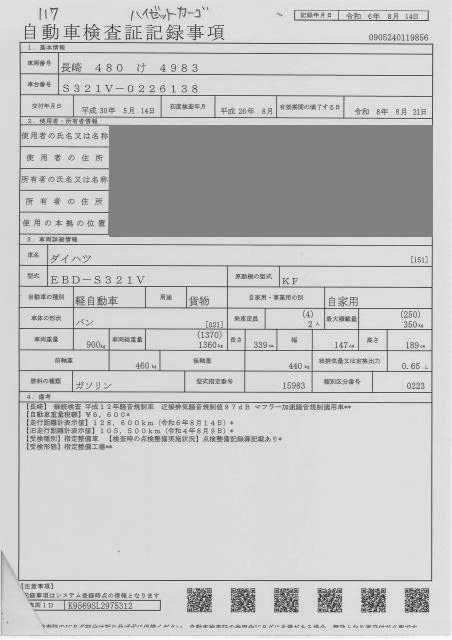 117 ハイゼットカーゴ
記録年月日 令和 6年 8月 14日
自動車検査証記録事項
0905240119856
1. 基本情報
車両番号 長崎 480 け 4983
車台番号 S321V-0226138
交付年月日 平成 30年 5月 14日 初度検査年月 平成 26年 8月 有効期間の満了する日 令和 8年 8月 21日
2. 使用者・所有者情報
使用者の氏名又は名称
使用者の住所
所有者の氏名又は名称
所有者の住所
使用の本拠の位置
3. 車両詳細情報
車名 ダイハツ [151]
型式 EBD-S321V 原動機の型式 KF
自動車の種別 軽自動車 用途 貨物 自家用・事業用の別 自家用
車体の形状 バン [021] 乗車定員 (4) 2人 最大積載量 (250) 350kg
車両重量 900kg 車両総重量 (1370) 1360kg 長さ 339cm 幅 147cm 高さ 189cm
前軸重 460kg 後軸重 440kg 総排気量又は定格出力 0.65 L
燃料の種類 ガソリン 型式指定番号 15983 類別区分番号 0223
4. 備考
【長崎】 継続検査 平成12年騒音規制車 近接排気騒音規制値97dB マフラー加速騒音規制適用車**
【自動車重量税額】¥6,600*
【走行距離計表示値】128,600km(令和6年8月14日)*
【旧走行距離計表示値】105,500km(令和4年8月9日)*
【受検種別】指定整備車 【検査時の点検整備実施状況】点検整備記録簿記載あり*
【受検形態】指定整備工場**
【注意事項】
記録事項はシステム登録時点の情報となります
車両ID K9569SL2975312